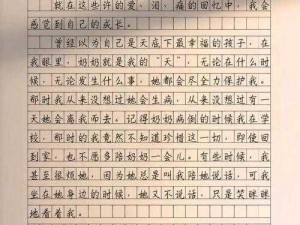 就在这些许的爱，泪，痛的回忆中，我会
感觉到自己的成长。
曾经以为自己是天底下最幸福的孩子，在
我眼里，奶奶就是我的“天”，无论在什么时
候，无论发生什么事，她都会尽全力保护我。
那时我从来没想过她会生病，从来没有想过她
会离我而去。记得奶奶病倒的时候我在学
校，那时的我竟然不知道珍惜这一切，即使回
到家，也不愿多陪奶奶一会儿。有些时候，我
甚至很烦她，因为她总是叫我陪她说话，可我
坐在她身边的时候，她又不说话，只是笑眯眯
地看着我。